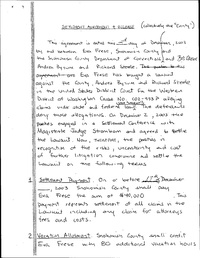 SETTLEMENT AGREEMENT & RELEASE (collectively the "County")
The agreement is dated this day of December, 2003
by and between Eva Freise, Snohomish County and
the Snohomish County Department of Corrections and
Andrea Bynum and Richard
agreement Eva Freise has brought a lawsuit
against the County, Andrea Bynum and Richard
in the United States District Court for the Western
District of Washington Cause No. alleging
claims under state and federal law. The defendants
deny these allegations. On December 2, 2003 the
parties engaged in a Settlement Conference with
Magistrate Judge and agreed to settle
the lawsuit. Now, therefore, the parties in
recognition of the risks, uncertainty and cost
of further litigation compromise and settle the
lawsuit on the following terms:
1. Settlement Payment. On or before December
, 2003 Snohomish County shall pay
Eva Freise the sum of This
payment represents settlement of all claims in the
lawsuit including any claim for attorneys
fees and costs.
2. Vacation Allotment. Snohomish County shall credit
Eva Freise with 80 additional vacation hours